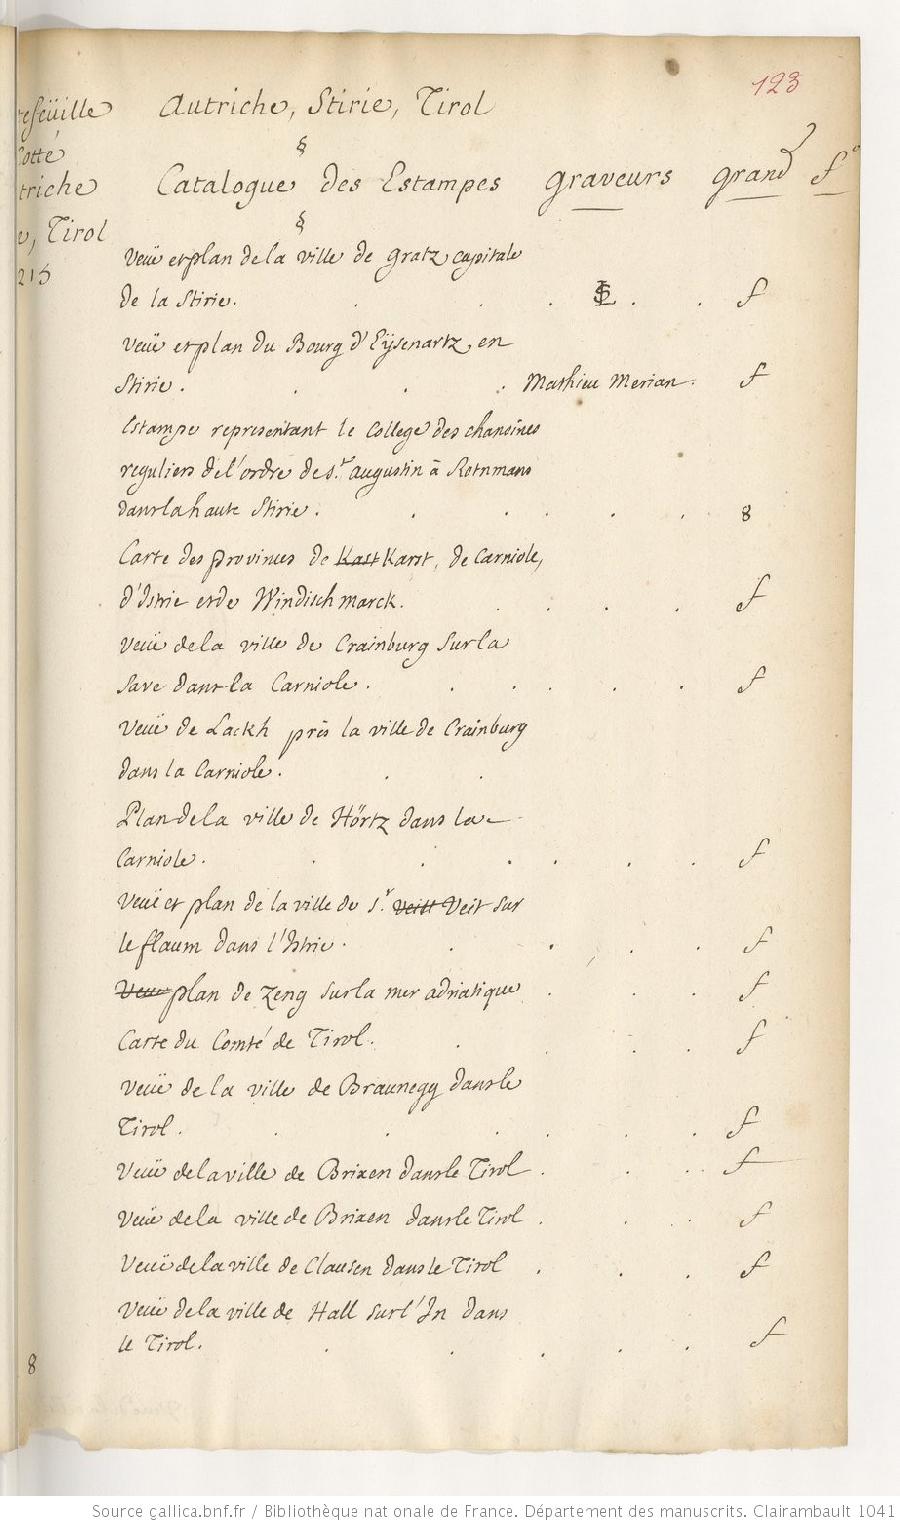 123
Autriche, Stirie, Tirol
§
Catalogue des Estampes graveurs grand f°
§
Veüe et plan de la ville de Gratz capitale
de la Stirie. f
Veüe et plan du Bourg d'Eÿsenartz, en
Stirie. Mathieu Merian. f
Estampe representant le College des chanoines
reguliers de l'ordre de s.t augustin à Rotnmans
dans la haute Stirie. 8
Carte des provinces de Kast Karst, de Carniole,
d'Istrie et de Windisch marck. f
Veüe de la ville de Crainburg sur la
Save dans la Carniole. f
Veüe de Lackh près la ville de Crainburg
dans la Carniole.
Plan de la ville de Hörtz dans la
Carniole. f
Veüe et plan de la ville de s.t Veitt Veit sur
le flaum dans l'Istrie. f
Veue plan de Zeng sur la mer adriatique f
Carte du Comté de Tirol. f
Veüe de la ville de Braunegg dans le
Tirol. f
Veüe de la ville de Brixen dans le Tirol. f
Veüe de la ville de Brixen dans le Tirol. f
Veüe de la ville de Clausen dans le Tirol. f
Veüe de la ville de Hall sur l'In dans
le Tirol. f
efeüille
Cotté
triche
e, Tirol
215
8
Source gallica.bnf.fr / Bibliothèque nationale de France. Département des manuscrits. Clairambault 1041